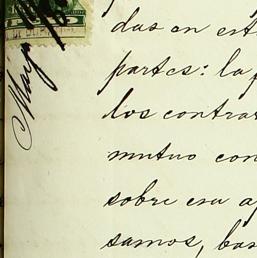 das en est
partes: la
los contrar
mutuo con
sobre esa a
samos, bas
Mayo